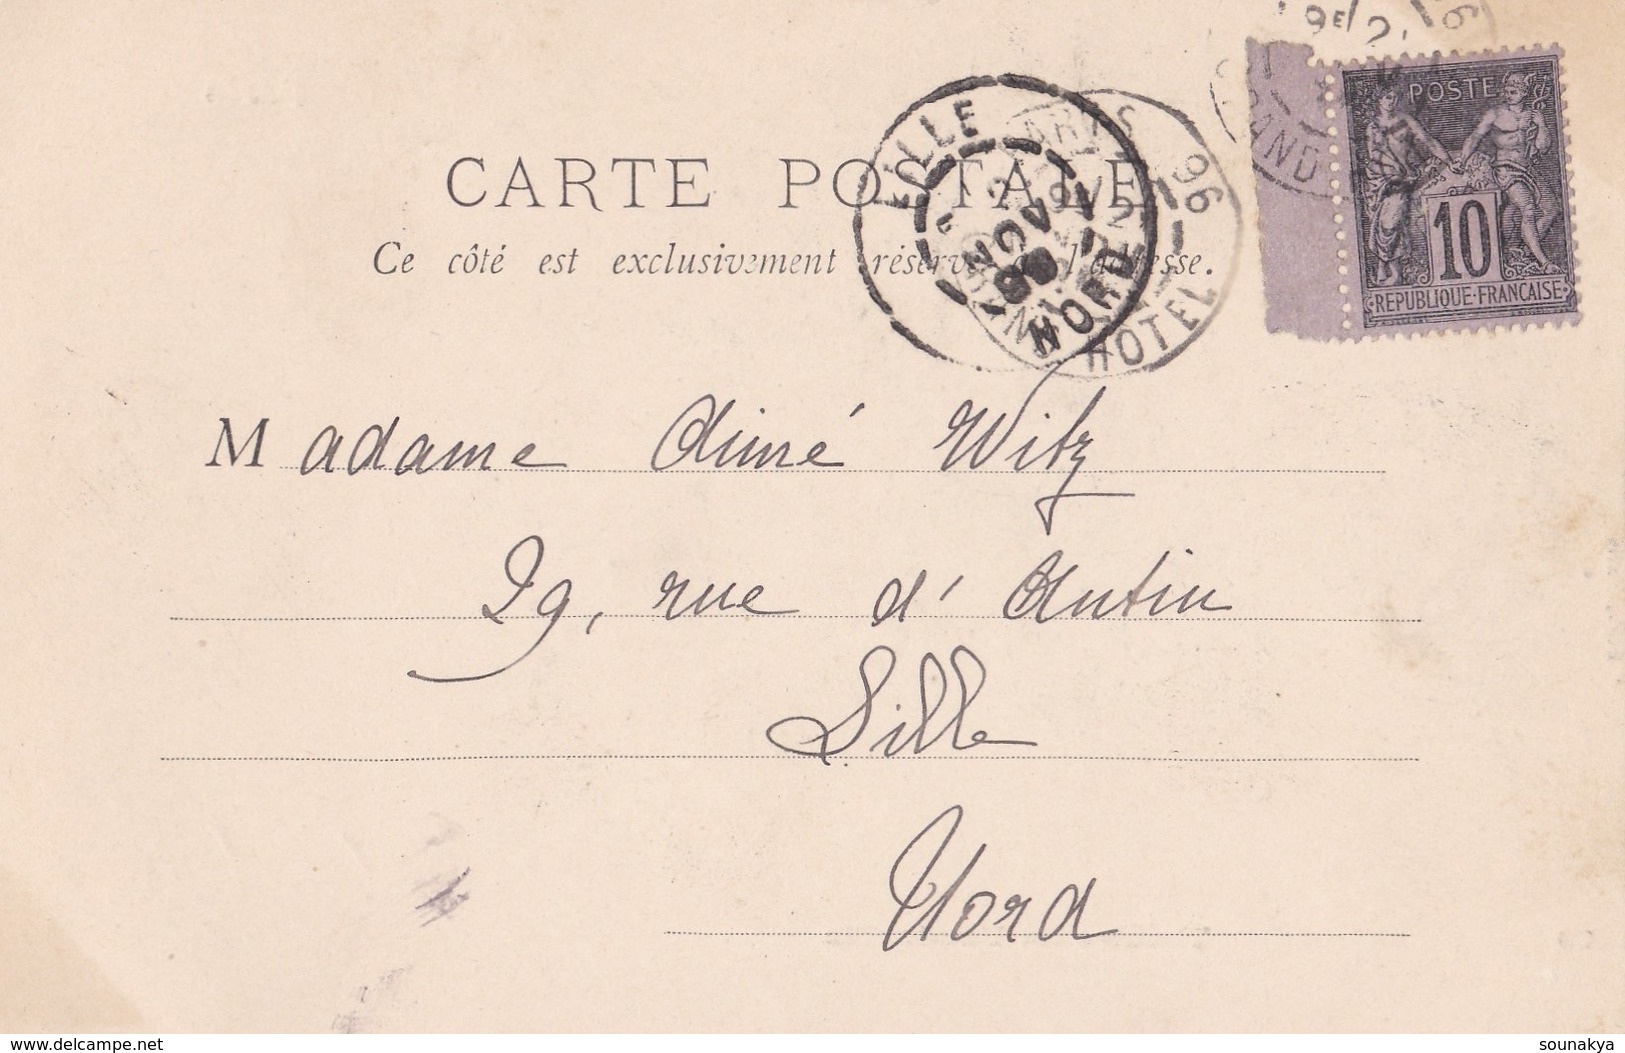 POSTE
10
RÉPUBLIQUE FRANÇAISE
LILLE
NORD
96
HOTEL
CARTE POSTALE
Ce côté est exclusivement réservé à l'adresse.
Madame Aimé Witz
29, rue d'Antin
Lille
Nord
www.delcampe.net
sounakya